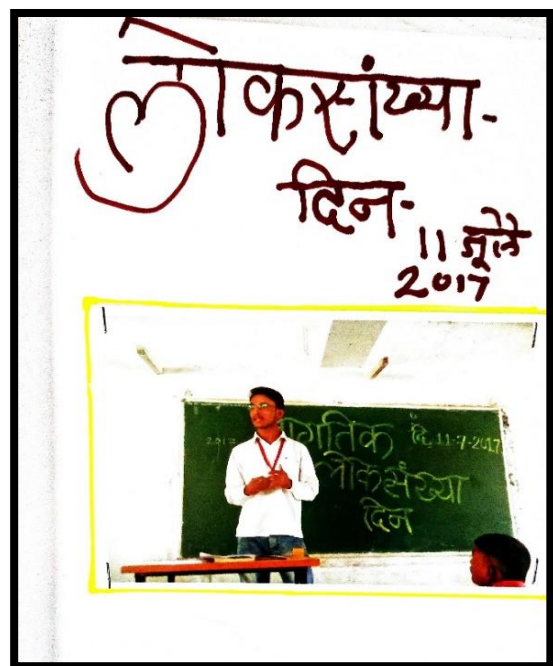 लोकसंख्या-
दिन-
11 जूलै
2017
जागतिक दि. 11-7-2017
लोकसंख्या
दिन